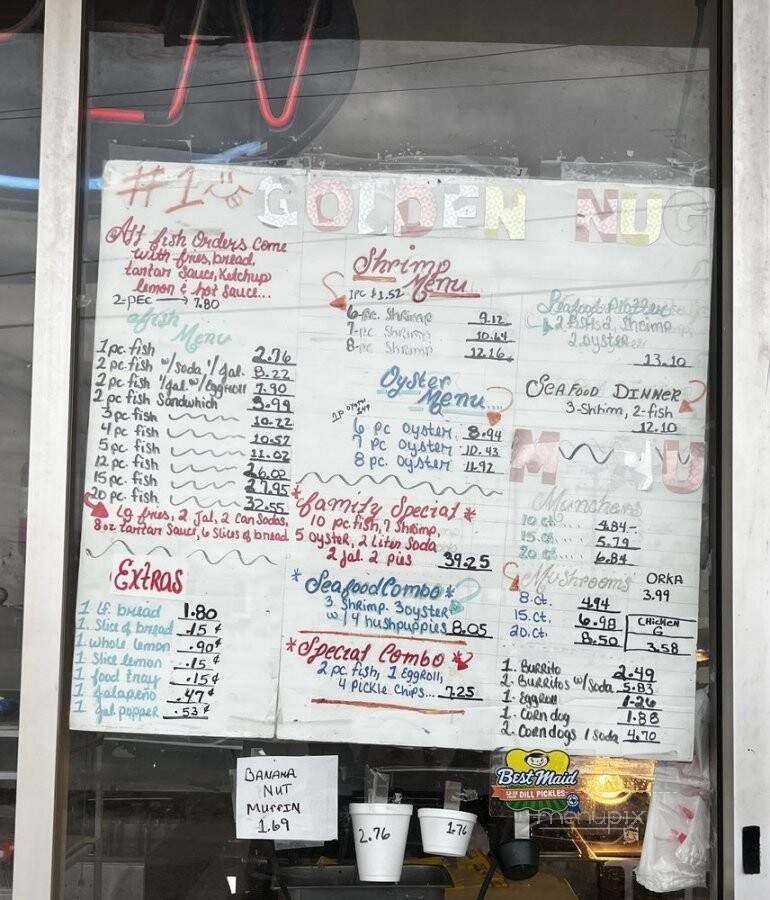 #1 GOLDEN NUG
All fish Orders Come
with fries, bread,
tartar Sauce, Ketchup
lemon & hot sauce...
2-pec → 7.80
fish
Menu
1 pc. fish 2.76
2 pc. fish w/soda, 1/Jal. 8.22
2 pc. fish 1/Jal. w/Eggroll 7.90
2 pc. fish Sandwhich 3.99
3 pc. fish 10.22
4 pc fish 10.52
5 pc. fish 11.02
12 pc. fish 26.02
15 pc. fish 27.95
20 pc. fish 32.55
Lg fries, 2 Jal, 2 Can Sodas,
8oz tartar Sauce, 6 Slices of bread
Extras
1 Lf. bread 1.80
1 Slice of bread .15¢
1 Whole lemon .90¢
1 Slice lemon .15¢
1 food tray .15¢
1 Jalapeño .47¢
1 Jal popper .53¢
Shrimp
Menu
1pc $1.52
6-pc. Shrimp 9.12
7-pc Shrimp 10.64
8-pc Shrimp 12.16
Oyster
Menu....
6 pc oyster 8.94
7 pc oyster 10.43
8 pc. oyster 11.92
*family Special*
10 pc. fish, 7 Shrimp,
5 oyster, 2 Liter Soda
2 Jal. 2 pies 39.25
*Seafood Combo*
3. Shrimp. 3oyster
w/4 hushpuppies 8.05
*Special Combo*
2 pc. fish, 1 Eggroll,
4 Pickle Chips... 7.25
Seafood Platter
2 fish, 2 Shrimp
2 oyster
13.10
SEAFOOD DINNER
3-Shrimp, 2-fish
12.10
MENU
Munchers
10 ct... 4.84-
15. ct... 5.79
20 ct... 6.84
Mushrooms
8. ct. 4.94
15. ct. 6.98
20. ct. 8.50
ORKA
3.99
CHICKEN
G
3.58
1. Burrito 2.49
2. Burritos w/Soda 5.83
1. Eggroll 1.26
1. Corn dog 1.88
2. Corn dogs 1 Soda 4.70
BANANA
NUT
MUFFIN
1.69
2.76
1.76
Best Maid
DILL PICKLES
menupix